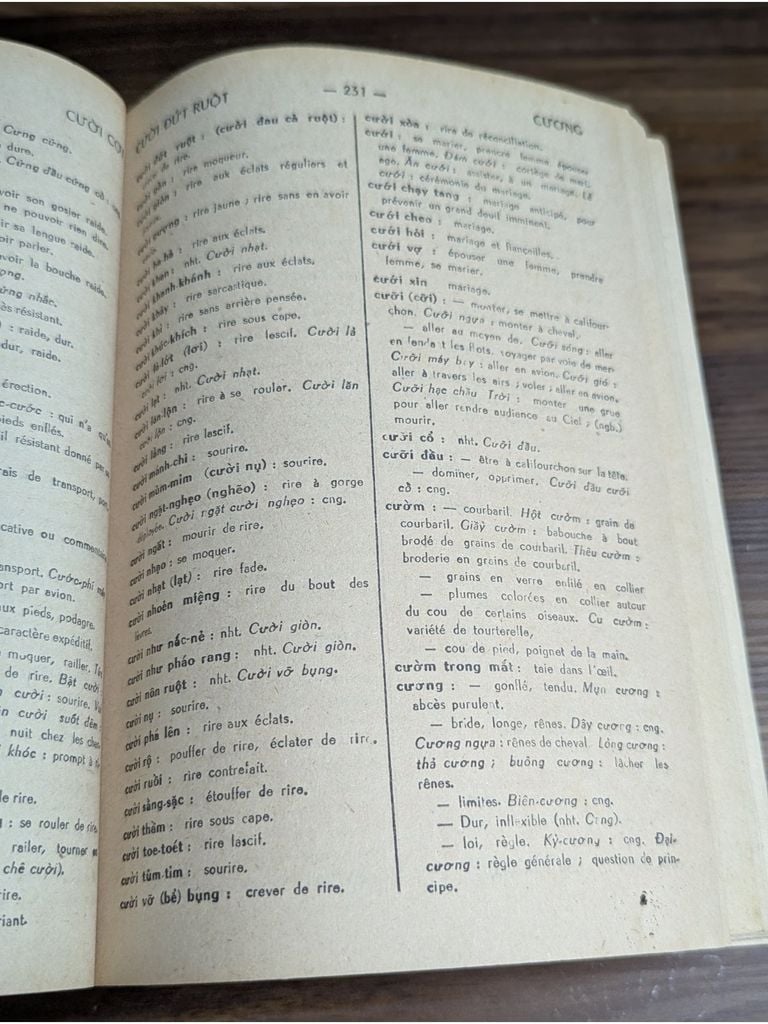 CƯỜI CỢ
Cưng cứng.
dure.
Cứng đầu cứng cổ :
voir son gosier raide.
ne pouvoir rien dire.
ir sa langue raide.
oir parler.
avoir la bouche raide.
ọng.
ứng nhắc.
ès résistant.
) : raide, dur.
dur, raide.
érection.
c-cước : qui n'a qu'
pieds enflés.
il résistant donné par
rais de transport, port
cative ou commentaire
ansport. Cước-phí
ort par avion.
aux pieds, podagre.
caractère expéditif.
moquer, railler.
de rire. Bật cười
cười : sourire.
n cười suốt đêm
nuit chez les
khóc : prompt à
le rire.
: se rouler de rire
railer, tourner
chê cười).
rire.
riant.
CƯỜI ĐỨT RUỘT
— 231 —
CƯƠNG
cười đứt ruột : (cười đau cả ruột) :
de rire.
cười gằn : rire moqueur.
cười giòn : rire aux éclats réguliers et
cười gượng : rire jaune ; rire sans en avoir
cười ha hả : rire aux éclats.
cười khan : nht. Cười nhạt.
cười khanh-khánh : rire aux éclats.
cười khảy : rire sarcastique.
cười khì : rire sans arrière pensée.
cười khúc-khích : rire sous cape.
cười lả-lớt (lơi) : rire lascif. Cười lả
lơi : cng.
cười lạt : nht. Cười nhạt.
cười lăn-lộn : rire à se rouler. Cười lăn
cười lộn : cng.
cười lẳng : rire lascif.
cười mánh-chi : sourire.
cười mủm-mỉm (cười nụ) : sourire.
cười ngặt-nghẹo (nghẽo) : rire à gorge
déployée. Cười ngặt cười nghẹo : cng.
cười ngất : mourir de rire.
cười nhạo : se moquer.
cười nhạt (lạt) : rire fade.
cười nhoẻn miệng : rire du bout des
lèvres.
cười như nắc-nẻ : nht. Cười giòn.
cười như pháo rang : nht. Cười giòn.
cười nôn ruột : nht. Cười vỡ bụng.
cười nụ : sourire.
cười phá lên : rire aux éclats.
cười rộ : pouffer de rire, éclater de rire.
cười ruồi : rire contrefait.
cười sằng-sặc : étouffer de rire.
cười thầm : rire sous cape.
cười toe-toét : rire lascif.
cười tủm-tỉm : sourire.
cười vỡ (bể) bụng : crever de rire.
cười xòa : rire de réconciliation.
cưới : se marier, prendre femme épouser
une femme. Đám cưới : cortège de mari-
age. Ăn cưới : assister, à un mariage. Lễ
cưới : cérémonie du mariage.
cưới chạy tang : mariage anticipé, pour
prévenir un grand deuil imminent.
cưới cheo : mariage.
cưới hỏi : mariage et fiançailles.
cưới vợ : épouser une femme, prendre
femme, se marier.
cưới xin mariage.
cưỡi (cỡi) : — monter, se mettre à califour-
chon. Cưỡi ngựa : monter à cheval.
— aller au moyen de. Cưỡi sóng : aller
en fendant les flots, voyager par voie de mer.
Cưỡi máy bay : aller en avion. Cưỡi gió :
aller à travers les airs ; voler ; aller en avion.
Cưỡi hạc chầu Trời : monter une grue
pour aller rendre audience au Ciel ; (ngb.)
mourir.
cưỡi cổ : nht. Cưỡi đầu.
cưỡi đầu : — être à califourchon sur la tête.
— dominer, opprimer. Cưỡi đầu cưỡi
cổ : cng.
cườm : — courbaril. Hột cườm : grain de
courbaril. Giầy cườm : babouche à bout
brodé de grains de courbaril. Thêu cườm :
broderie en grains de courbaril.
— grains en verre enfilé en collier
— plumes colorées en collier autour
du cou de certains oiseaux. Cu cườm :
variété de tourterelle,
— cou de pied, poignet de la main.
cườm trong mắt : taie dans l'œil.
cương : — gonflé, tendu. Mụn cương :
abcès purulent.
— bride, longe, rênes. Dây cương : cng.
Cương ngựa : rênes de cheval. Lỏng cương :
thả cương ; buông cương : lâcher les
rênes.
— limites. Biên-cương : cng.
— Dur, inflexible (nht. Cứng).
— loi, règle. Kỷ-cương : cng. Đại-
cương : règle générale ; question de prin-
cipe.